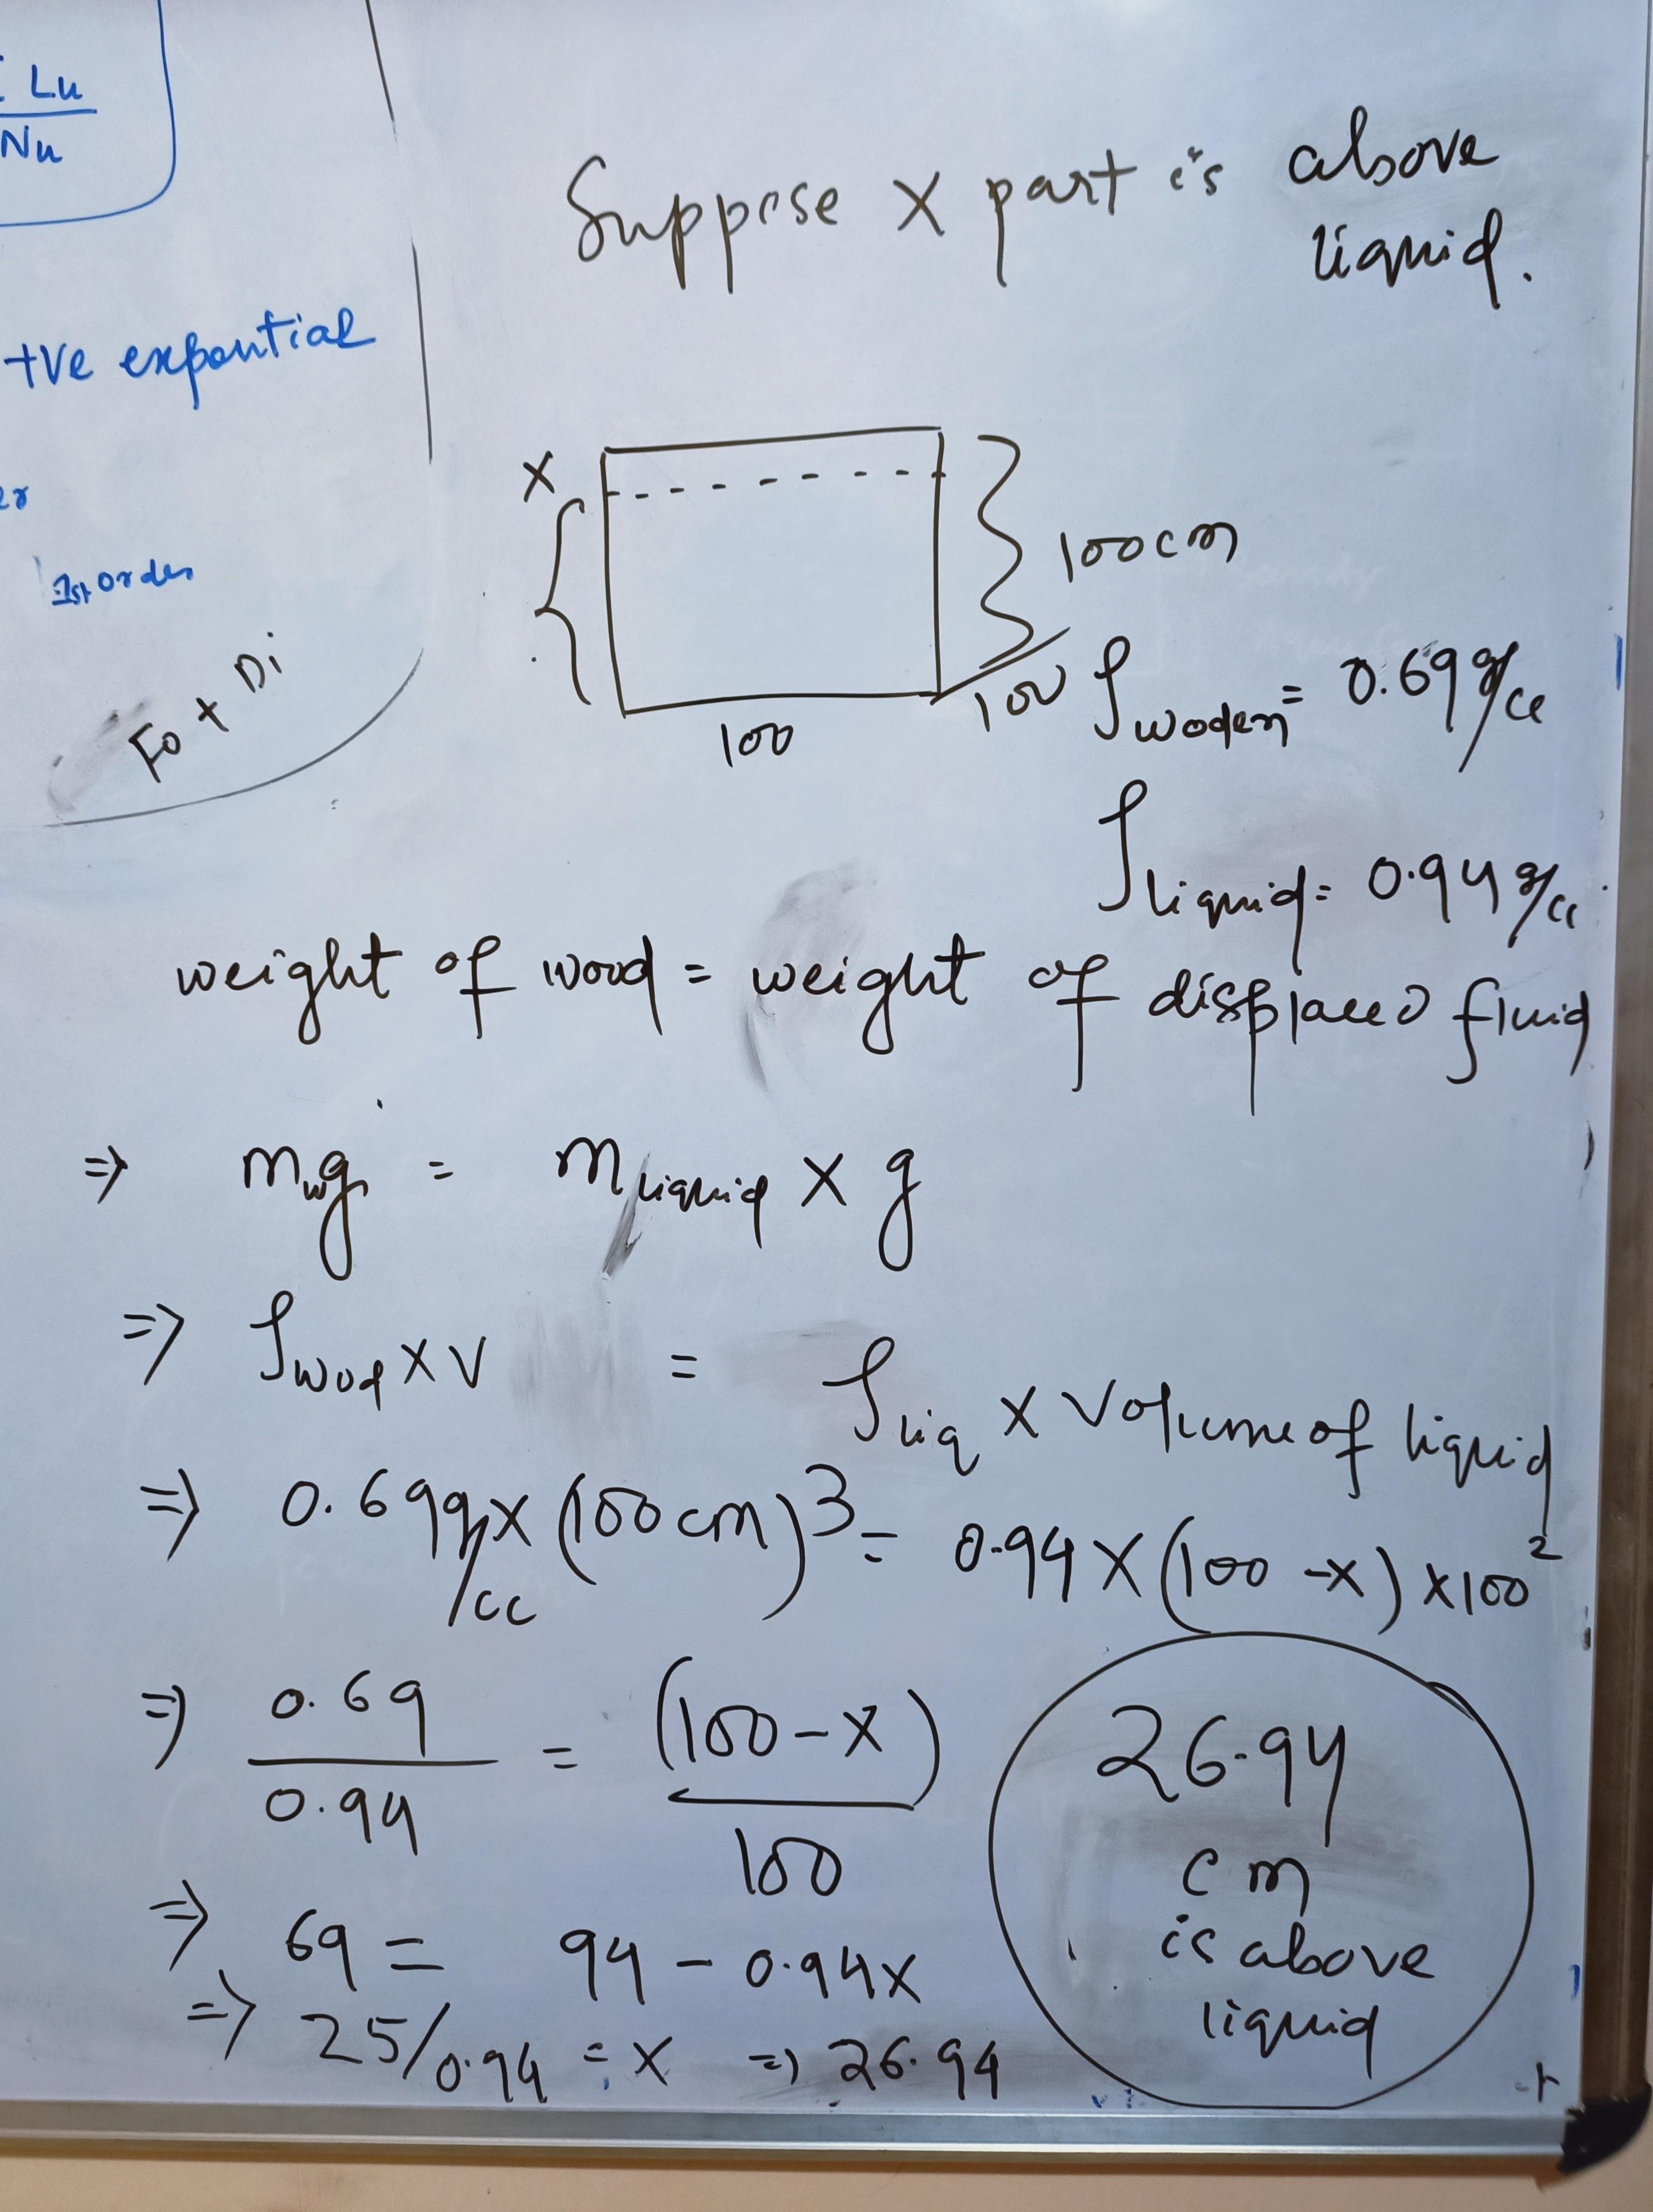 Lu
Nu
+ve expontial
er
1st order
Fo + Di
Suppose X part is above
liquid.
X
100cm
100
100
ρwoden = 0.69 g/cc
ρliquid = 0.94 g/cc
weight of wood = weight of displaced fluid
⇒ mwg = mliquid × g
⇒ ρwod × V = ρliq × Volume of liquid
⇒ 0.69 g/cc × (100cm)³ = 0.94 × (100 - x) × 100²
⇒ 0.69/0.94 = (100 - x)/100
⇒ 69 = 94 - 0.94x
⇒ 25/0.94 = x ⇒ 26.94
26.94
cm
is above
liquid